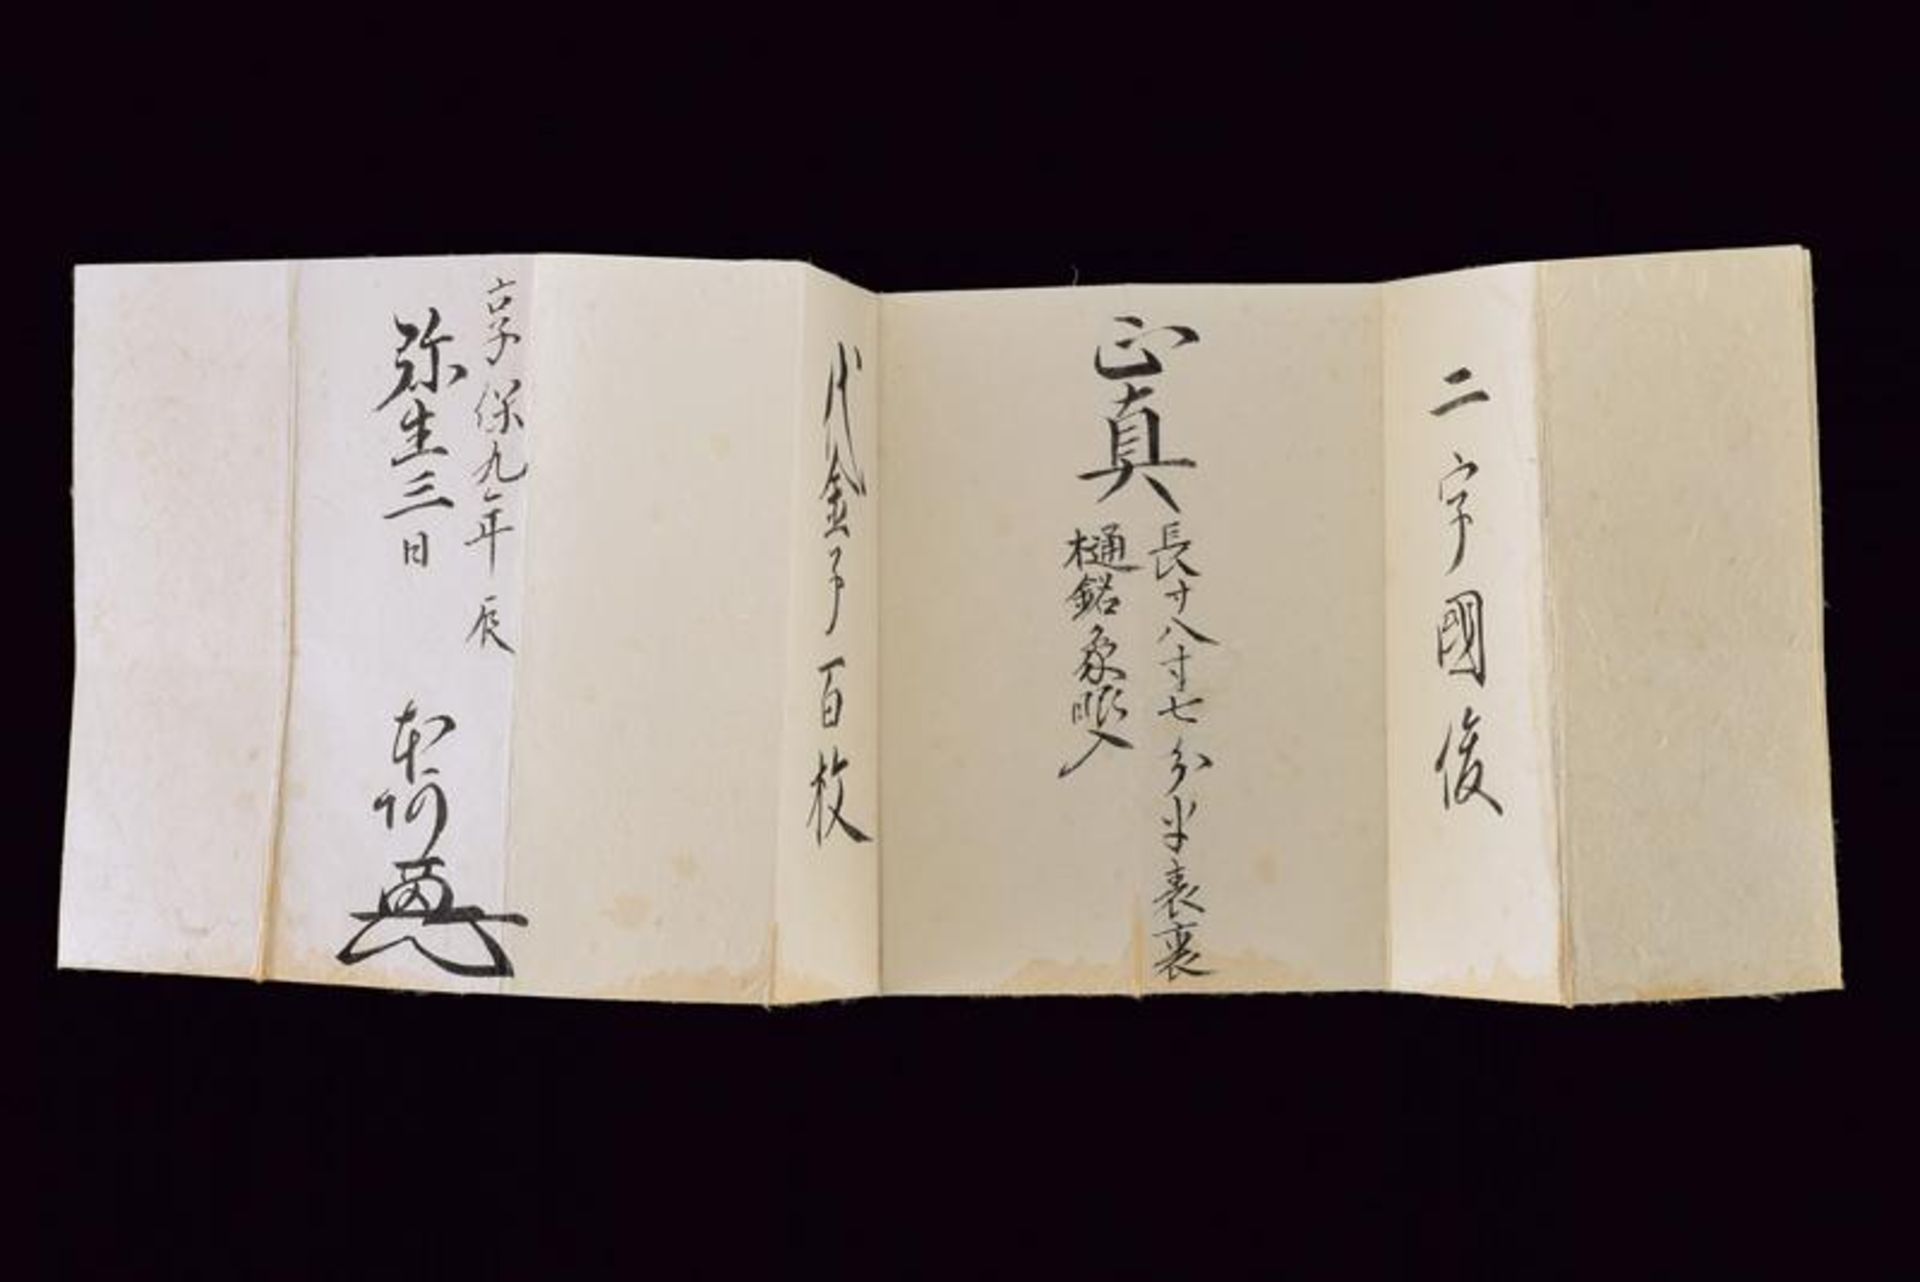 二字國俊
正真
長寸八寸七分半表裏
樋銘象眼入
代金子百枚
享保九年 辰
弥生三日
本阿